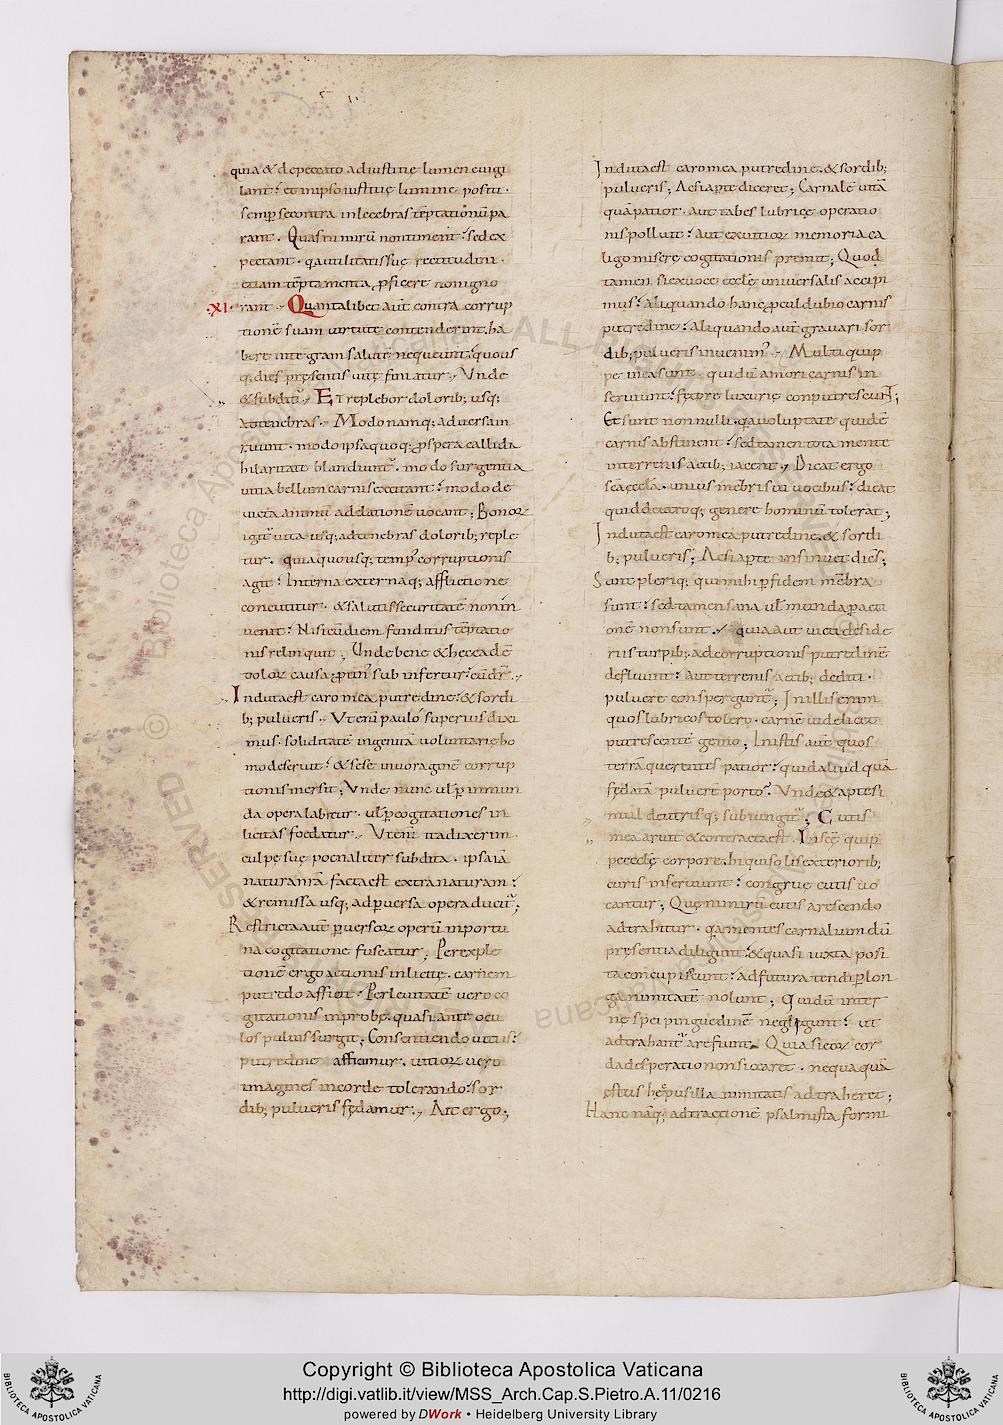 quia & depeccato adiustitię lumen euigi
lant; et inipso iustitię lumine positi.
semp secontra inlecebras tēptationū pa
rant. Quasnimirū nontiment; sedex
pectant. qautilitatissuę rectitudini.
etiam tēptamenta, pficere nonigno
.XI. rant. Quantalibet aūt contra corrup
tionē suam uirtute contenderint. ha
bere integram salutē nequeunt; quous
q; dies presentis uitę finiatur. Vnde
& subditᷓ. Et replebor dolorib; usq;
adtenebras. Modo namq; aduersa in
ruunt. modo ipsaquoq; pspera callida
hilaritate blandiuntᷓ. modo surgentia
uitia bellum carnis excitant; modo de
uicta animū adelatione uocant; Bonoꝝ
igit uita usq; adtenebras dolorib; reple
tur. quiaquousq; temp corruptionis
agit; Interna externaq; afflictione
concutitur. & salutis securitatē non in
uenit; Nisi eūdiem funditus tēptatio
nis relinquit. Unde bene & hęc eadē
doloꝝ causa ptin sub infertur; cūdr.
Induta est caro mea putredine; & sordi
b; pulueris. Vt enī paulo superius dixi
mus. soliditatē ingenitā uoluntarię ho
mo deseruit; & sese inuoraginē corrup
tionis mersit; Vnde nunc ul p inmun
da opera labitur. ul p cogitationes in
licitas foedatur. Vt enī ita dixerim.
culpę suę poenaliter subdita. ipsa iā
natura nrā facta est extra naturam;
& remissa usq; ad puersa opera ducitᷓ;
Restricta aute puersoꝝ operū inportu
na cogitatione fuscatur; Per exple
tionē ergo actionis inlicitę. carnem
putredo afficit; Per leuitatē uero co
gitationis inprobę. quasi ante ocu
los puluis surgit; Consentiendo uitiis;
putredine afficimur. uitioꝝ uero
imagines incorde tolerando; sor
dib; pulueris fędamur. Ait ergo;
Induta est caro mea putredine. & sordib;
pulueris; Ac si apte diceret; Carnalē uitā
quā patior. aut tabes lubricę operatio
nis polluit; aut exuitioꝝ memoria ca
ligo misere cogitationis premit; Quod
tamen si exuoce ecclę uniuersalis accipi
mus; aliquando hanc pculdubio carnis
putredine; aliquando aut grauari sor
dib; pulueris inuenim. Multi quip
pe in ea sunt. qui dū amori carnis in
seruiunt; fętore luxurię conputrescunt;
Et sunt nonnulli. q a uoluptate quidē
carnis abstinent; sed tamen tota mente
interrenis actib; iacent. Dicat ergo
sca eccla. unius mēbri sui uocibus; dicat
quid deutroq; genere hominū tolerat;
Induta est caro mea putredine. & sordi
b; pulueris; Ac si apte insinuet dies;
Sunt pleriq; qui mihi p fidem mēbra
sunt; sed tamen sana ul munda p acti
onē non sunt. quia aut uicti deside
riis turpib; ad corruptionis putredinē
defluunt; Aut terrenis actib; dediti.
puluere conspergunt; In illis enim
quos lubricos tolero. carnē uidelicet
putrescentē gemo; In istis aut quos
terrā querentes patior; quid aliud quā
fędatā puluerē porto? Vnde & apte si
mul deutrisq; subiungit; Cutis
mea aruit & contracta est. In scę quip
pe ecclę corpore. hi qui solis exteriorib;
curis inseruiunt; congrue cutis uo
cantur; Quę nimirū cutis arescendo
adtrahitur. q a mentes carnalium dū
presentia diligunt; & quasi iuxta posi
ta concupiscunt; ad futura tendi p lon
ganimitatē nolunt; Qui dū inter
nę spei pinguedinē neglegunt; ut
adtrahant arefiunt. Quia si eoꝝ cor
da desperatio non siccaret. nequaquā
ęstus hęc pusillanimitatis adtraheret;
Hanc nāq; adtractionē psalmista formi
Copyright © Biblioteca Apostolica Vaticana
http://digi.vatlib.it/view/MSS_Arch.Cap.S.Pietro.A.11/0216
powered by DWork • Heidelberg University Library
BIBLIOTECA APOSTOLICA VATICANA
BIBLIOTECA APOSTOLICA VATICANA